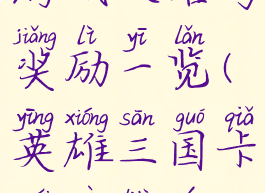 jiǎng lì yī lǎn
奖励一览(
yīng xióng sān guó qiǎ
英雄三国卡